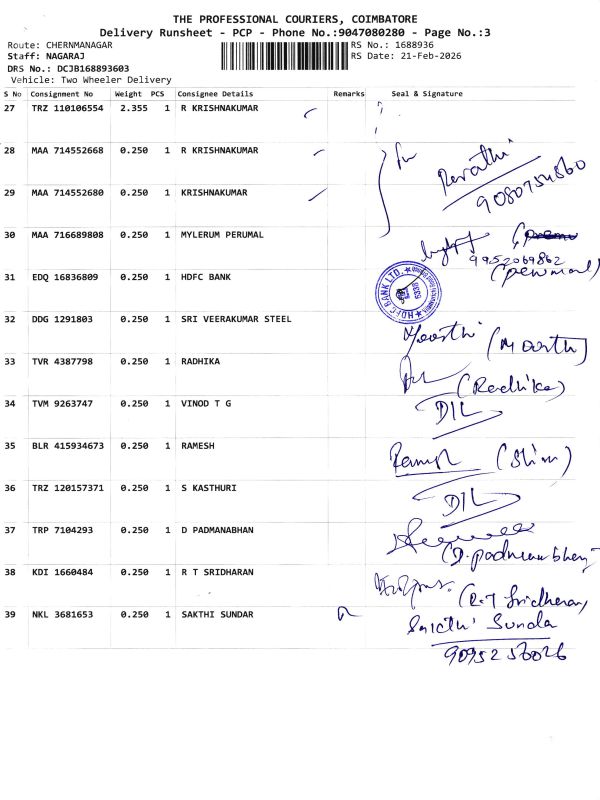 THE PROFESSIONAL COURIERS, COIMBATORE
Delivery Runsheet - PCP - Phone No.:9047080280 - Page No.:3
Route: CHERNMANAGAR RS No.: 1688936
Staff: NAGARAJ RS Date: 21-Feb-2026
DRS No.: DCJB168893603
Vehicle: Two Wheeler Delivery
S No Consignment No Weight PCS Consignee Details Remarks Seal & Signature
27 TRZ 110106554 2.355 1 R KRISHNAKUMAR
28 MAA 714552668 0.250 1 R KRISHNAKUMAR
Revathi
29 MAA 714552680 0.250 1 KRISHNAKUMAR
9080754860
30 MAA 716689808 0.250 1 MYLERUM PERUMAL
9952069862
(perumal)
31 EDQ 16836809 0.250 1 HDFC BANK
HDFC BANK LTD.
32 DDG 1291803 0.250 1 SRI VEERAKUMAR STEEL
Moorthi (Moorthi)
33 TVR 4387798 0.250 1 RADHIKA
(Radhika)
34 TVM 9263747 0.250 1 VINOD T G
D/L
35 BLR 415934673 0.250 1 RAMESH
Ramesh
36 TRZ 120157371 0.250 1 S KASTHURI
D/L
37 TRP 7104293 0.250 1 D PADMANABHAN
(D.padmanabhan)
38 KDI 1660484 0.250 1 R T SRIDHARAN
(R.T Sridharan)
39 NKL 3681653 0.250 1 SAKTHI SUNDAR
Sakthi Sundar
9095256026